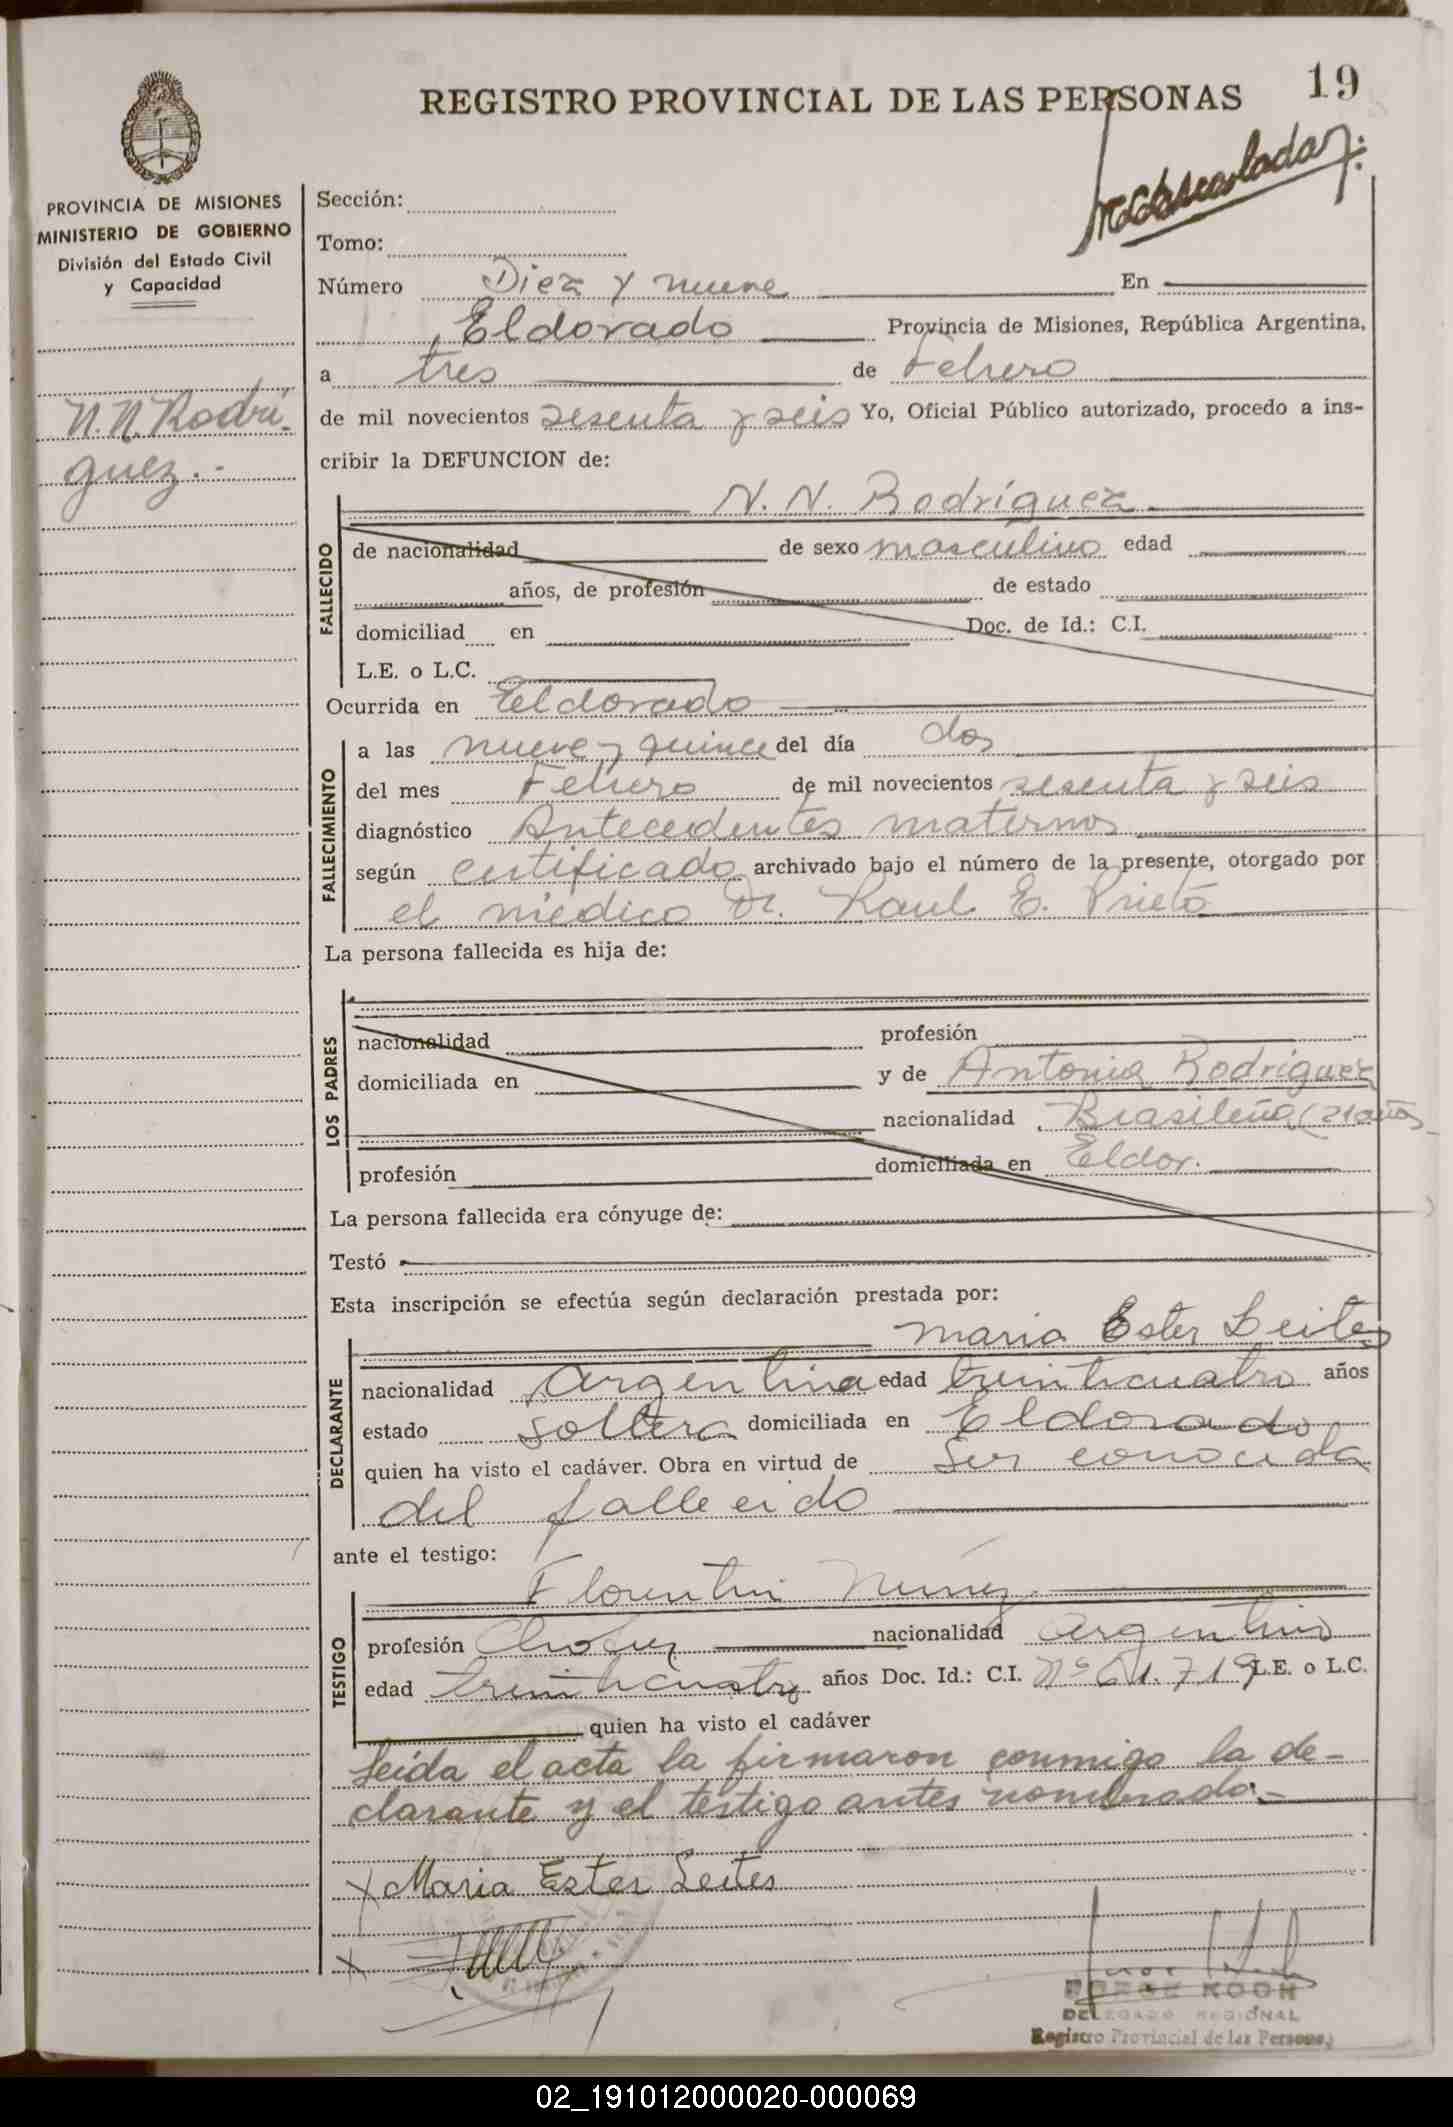 19
REGISTRO PROVINCIAL DE LAS PERSONAS
PROVINCIA DE MISIONES
MINISTERIO DE GOBIERNO
División del Estado Civil
y Capacidad
N.N. Rodrí-
guez.-
Sección:
Tomo:
Número Diez y nueve En
Eldorado Provincia de Misiones, República Argentina,
a tres de Febrero
de mil novecientos sesenta y seis Yo, Oficial Público autorizado, procedo a ins-
cribir la DEFUNCION de:
N. N. Rodríguez
FALLECIDO
de nacionalidad de sexo masculino edad
años, de profesión de estado
domiciliad en Doc. de Id.: C.I.
L.E. o L.C.
Ocurrida en Eldorado
FALLECIMIENTO
a las nueve y quince del día dos
del mes Febrero de mil novecientos sesenta y seis
diagnóstico Antecedentes maternos
según certificado archivado bajo el número de la presente, otorgado por
el médico Dr. Raul E. Prieto
La persona fallecida es hija de:
LOS PADRES
nacionalidad profesión
domiciliada en y de Antonia Rodriguez
nacionalidad Brasileña (21 años
profesión domiciliada en Eldor.
La persona fallecida era cónyuge de:
Testó
Esta inscripción se efectúa según declaración prestada por:
Maria Ester Leites
DECLARANTE
nacionalidad Argentina edad treinticuatro años
estado Soltera domiciliada en Eldorado
quien ha visto el cadáver. Obra en virtud de Ser conocida
del fallecido
ante el testigo:
Florentin Nuñez
TESTIGO
profesión Chofer nacionalidad argentino
edad treinticuatro años Doc. Id.: C.I. Nº 61.719 L.E. o L.C.
quien ha visto el cadáver
Leída el acta la firmaron conmigo la de-
clarante y el testigo antes nombrado.-
x Maria Ester Leites
x
JORGE KOCH
DELEGADO REGIONAL
Registro Provincial de las Personas
02_191012000020-000069